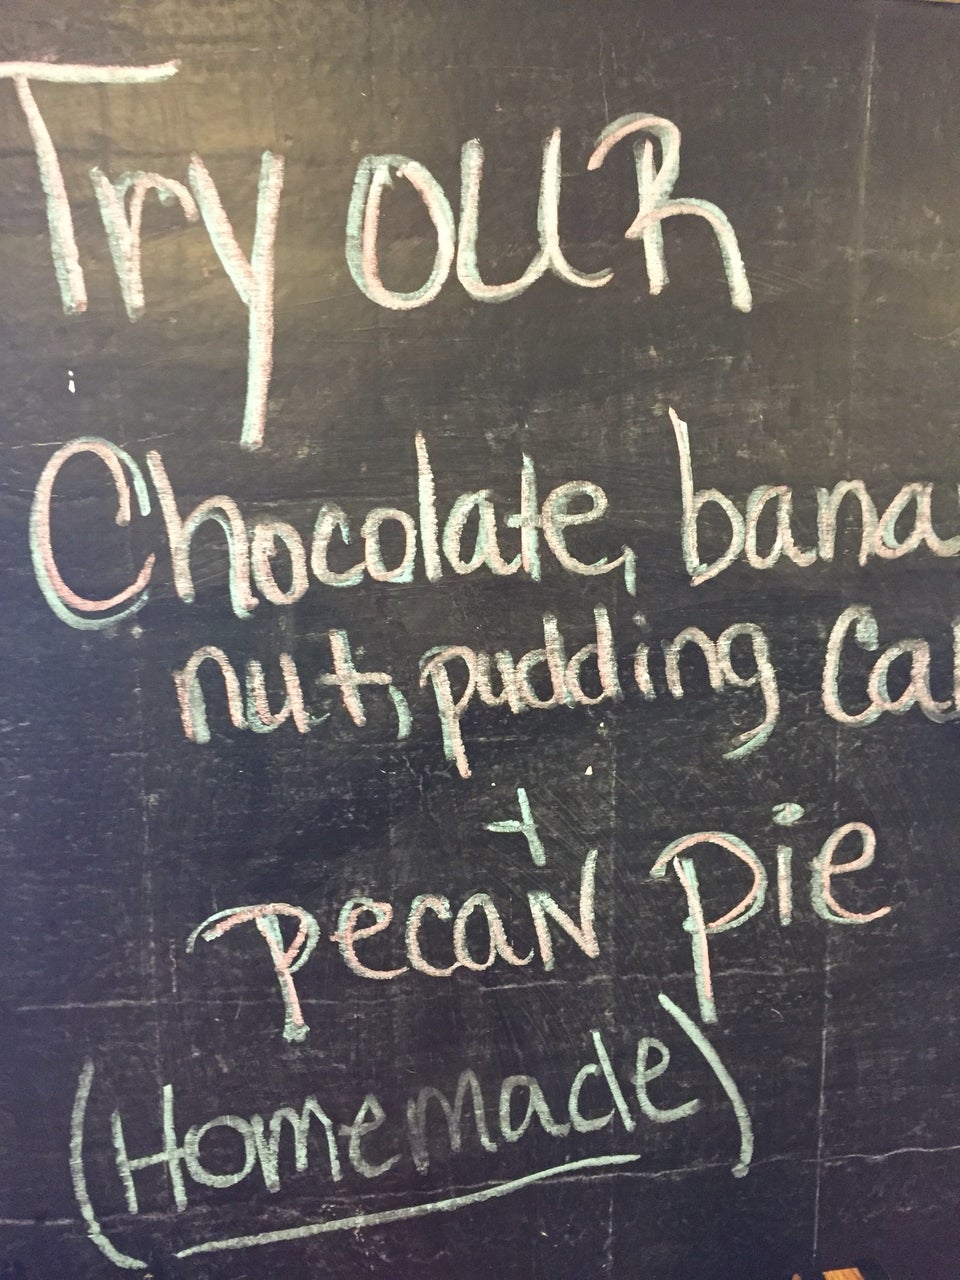 Try OUR
Chocolate, bana
nut, pudding Ca
+
Pecan Pie
(Homemade)